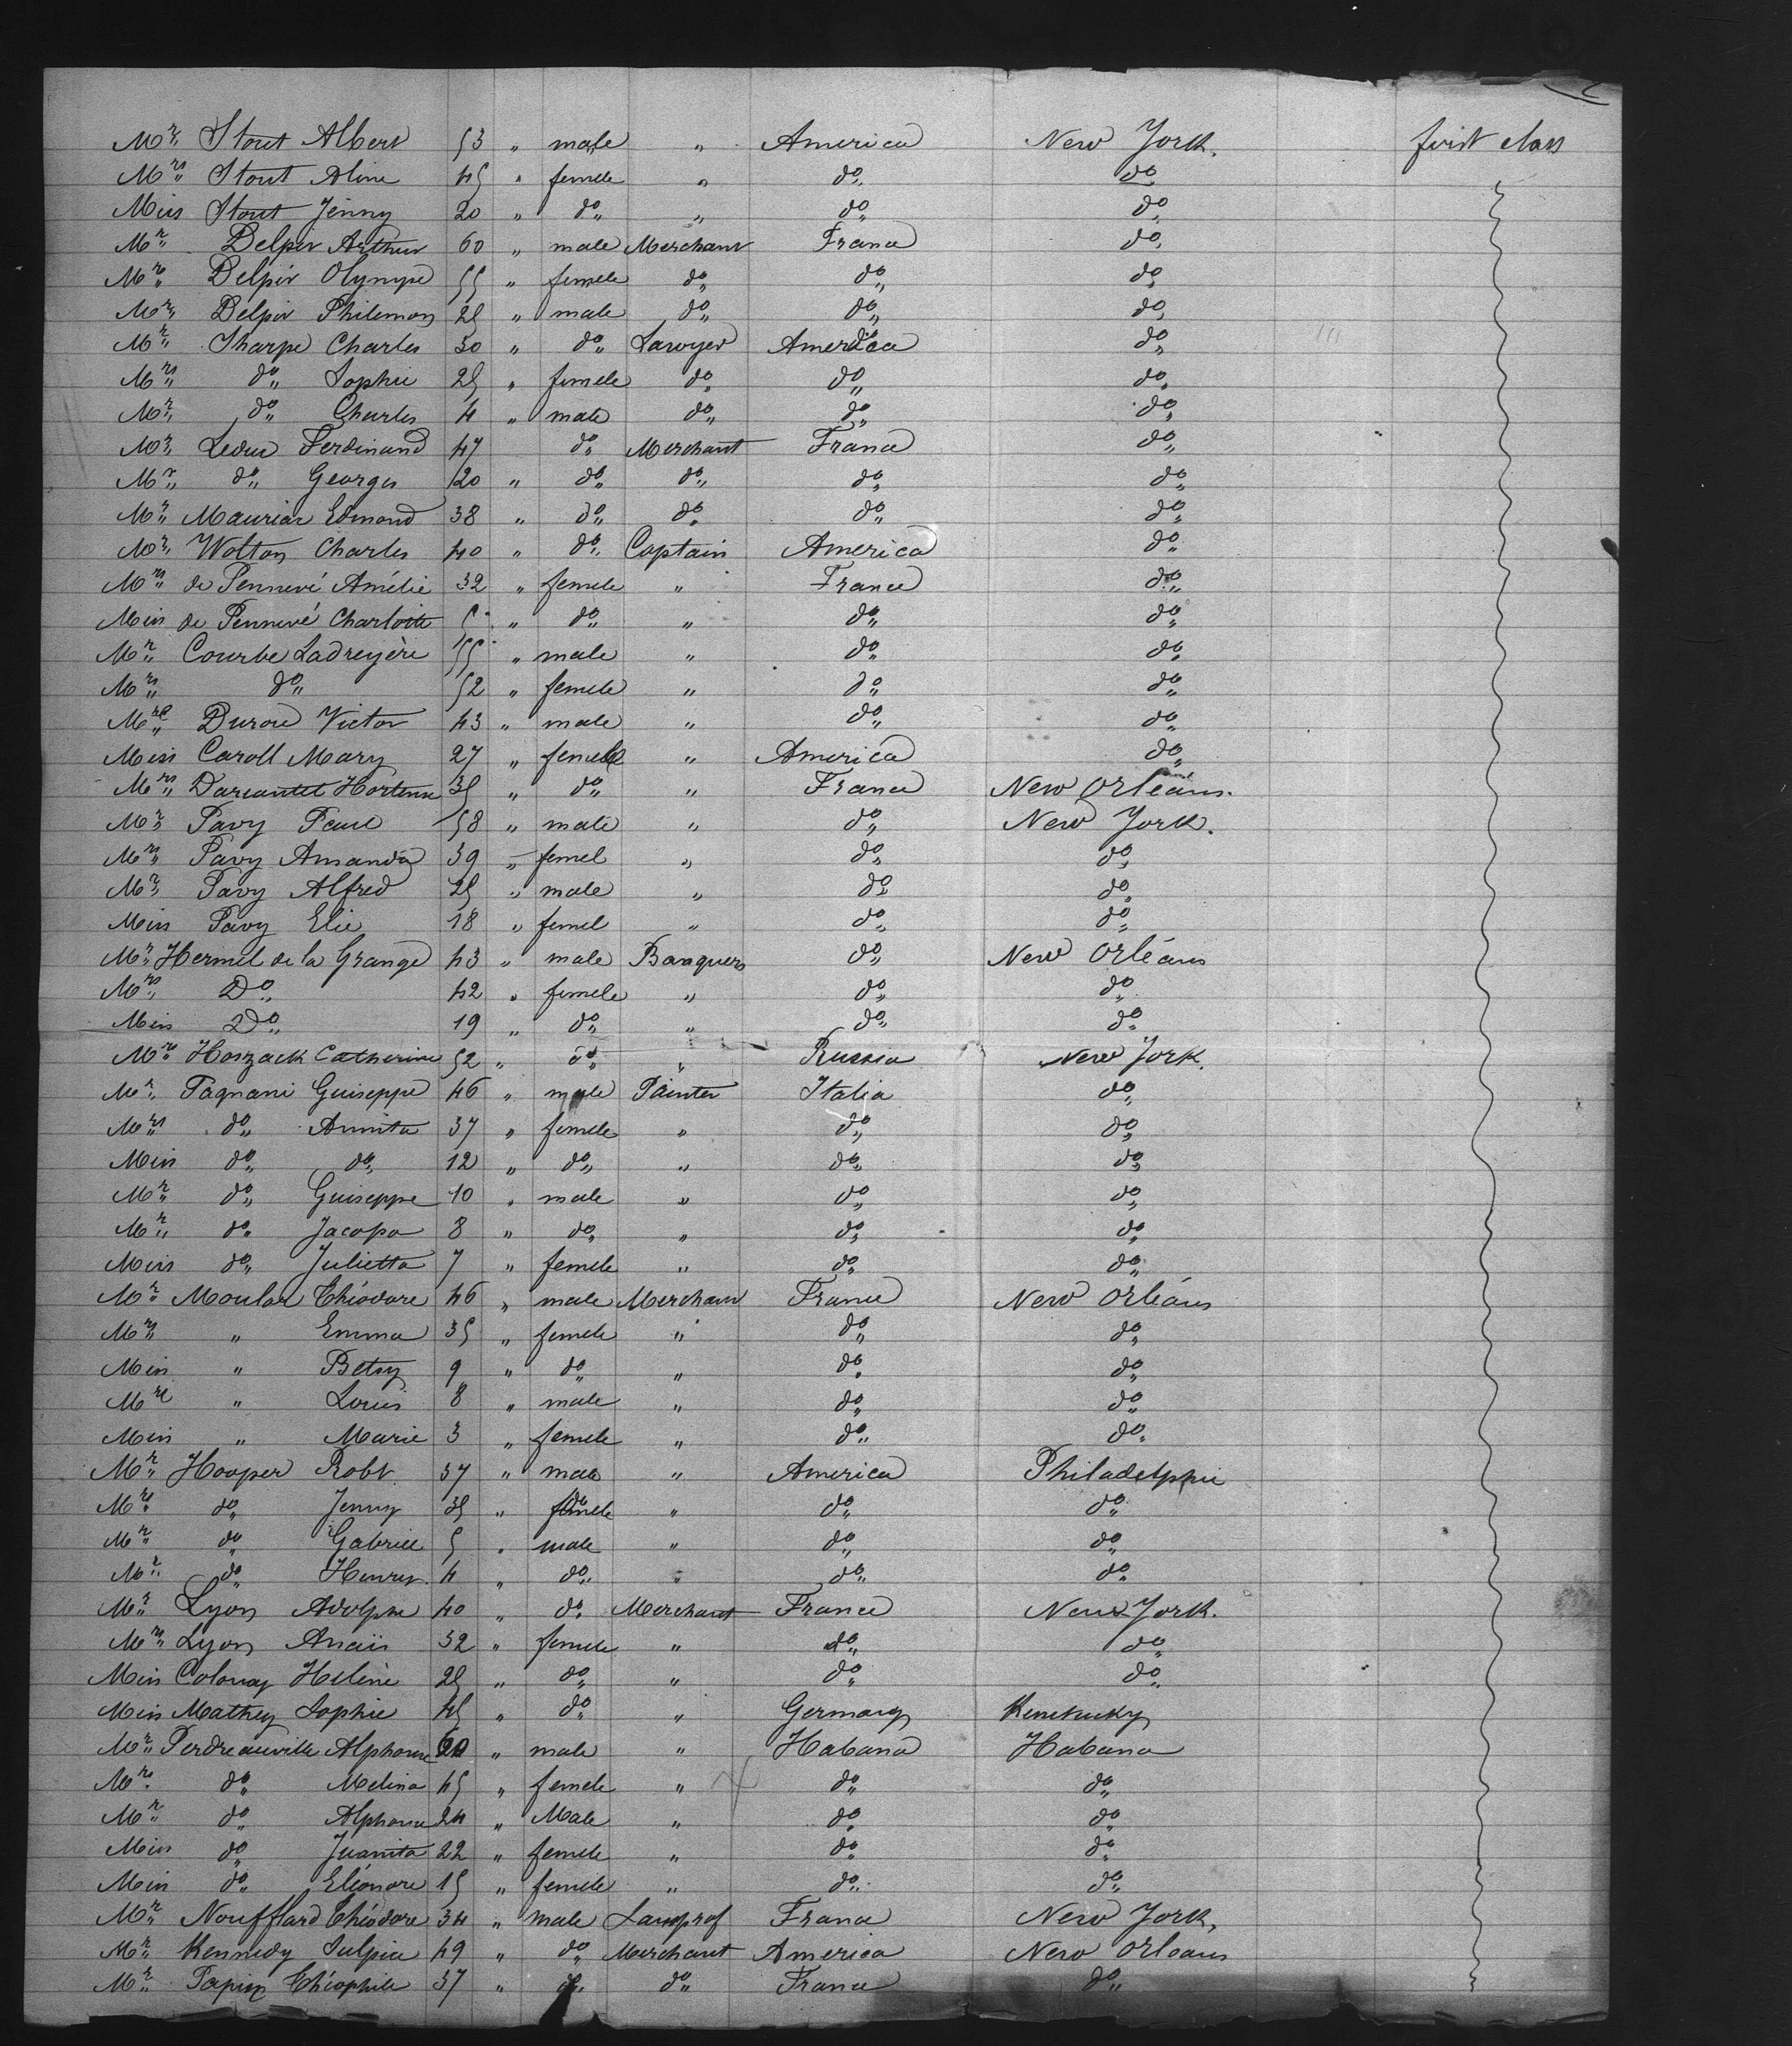 Mr Stout Albert 53 " male " America New York. first class
Mrs Stout Aline 45 " female " do do
Miss Stout Jenny 20 " do " do do
Mr Delpir Arthur 60 " male Merchant France do
Mrs Delpir Olympe 55 " female do do do
Mr Delpir Philemon 25 " male do do do
Mr Sharpe Charles 30 " do Lawyer America do
Mrs do Sophie 25 " female do do do
Mr do Charles 4 " male do do do
Mr Leduc Ferdinand 47 do Merchant France do
Mr do Georges 20 " do do do do
Mr Mauriac Edmond 38 " do do do do
Mr Wolton Charles 40 " do Captain America do
Mrs de Pennevé Amélie 32 " female " France do
Miss de Pennevé Charlotte 5 " do " do do
Mr Courbe Ladreyère 55 " male " do do
Mrs do 52 " female " do do
Mr Durou Victor 43 " male " do do
Miss Caroll Mary 27 " female " America do
Mrs Darcantel Hortense 35 " do " France New Orléans.
Mr Pavy Paul 58 " male " do New York.
Mrs Pavy Amanda 39 " femel " do do
Mr Pavy Alfred 25 " male " do do
Miss Pavy Elie 18 " femel " do do
Mr Hermel de la Grange 43 " male Banquers do New Orléans
Mrs Do 42 " female " do do
Miss Do 19 " do " do do
Mrs Hoszack Catherine 52 " do " Russia New York.
Mr Fagnani Guiseppe 46 " male Painter Italia do
Mrs do Annita 37 " female " do do
Miss do do 12 " do " do do
Mr do Guiseppe 10 " male " do do
Mr do Jacopo 8 " do " do do
Miss do Julietta 7 " female " do do
Mr Moulor Théodore 46 " male Merchant France New Orléans
Mrs " Emma 35 " female " do do
Miss " Betsy 9 " do " do do
Mr " Louis 8 " male " do do
Miss " Marie 3 " female " do do
Mr Hooper Robt 37 " male " America Philadelphie
Mrs do Jenny 35 " female " do do
Mr do Gabriell 5 " male " do do
Mr do Henry 4 " do " do do
Mr Lyon Adolphe 40 " do Merchant France New York.
Mrs Lyon Anaïs 32 " female " do do
Miss Colonay Hélène 25 " do " do do
Miss Mathey Sophie 45 " do " Germany Kenekucky
Mr Perdreauville Alphonse " male " Habana Habana
Mrs do Melina 45 " female " do do
Mr do Alphonse 24 " Male " do do
Miss do Juanita 22 " female " do do
Miss do Eléonore 15 " female " do do
Mr Noufflard Théodore 34 " male France New York,
Mr Kennedy Sulpice 49 " do Merchant America New Orleans
Mr Papin Théophile 37 " do do France do